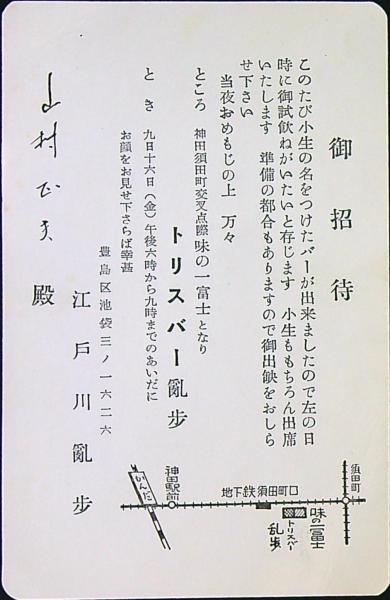 御招待
このたび小生の名をつけたバーが出来ましたので左の日
時に御試飲ねがいたいと存じます　小生ももちろん出席
いたします　準備の都合もありますので御出缺をおしら
せ下さい
当夜おめもじの上　万々
ところ　神田須田町交叉点際味の一富士となり
トリスバー亂歩
とき　九日十六日（金）午後六時から九時までのあいだに
お顔をお見せ下さらば幸甚
豊島区池袋三ノ一六二六
江戸川亂歩
山村正夫　殿
須田町
味の一富士
トリスバー
乱歩
地下鉄須田町口
神田駅前
かんだ